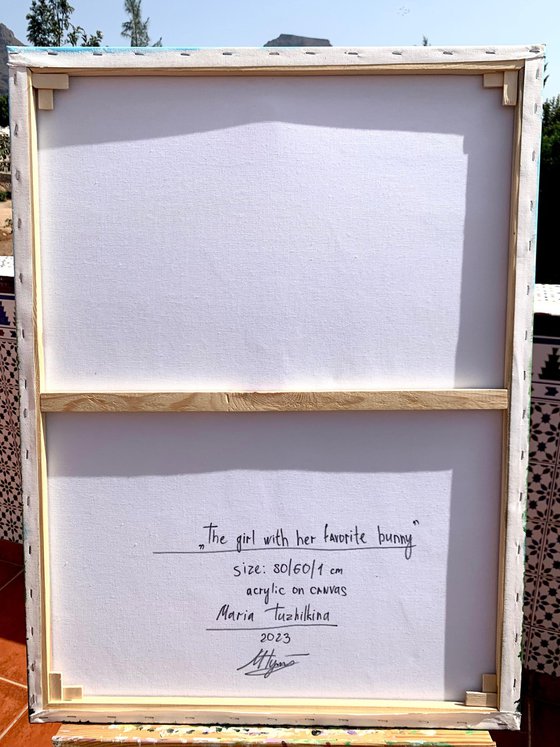 „The girl with her favorite bunny"
size: 80/60/1 cm
acrylic on CANVAS
Maria Tuzhilkina
2023